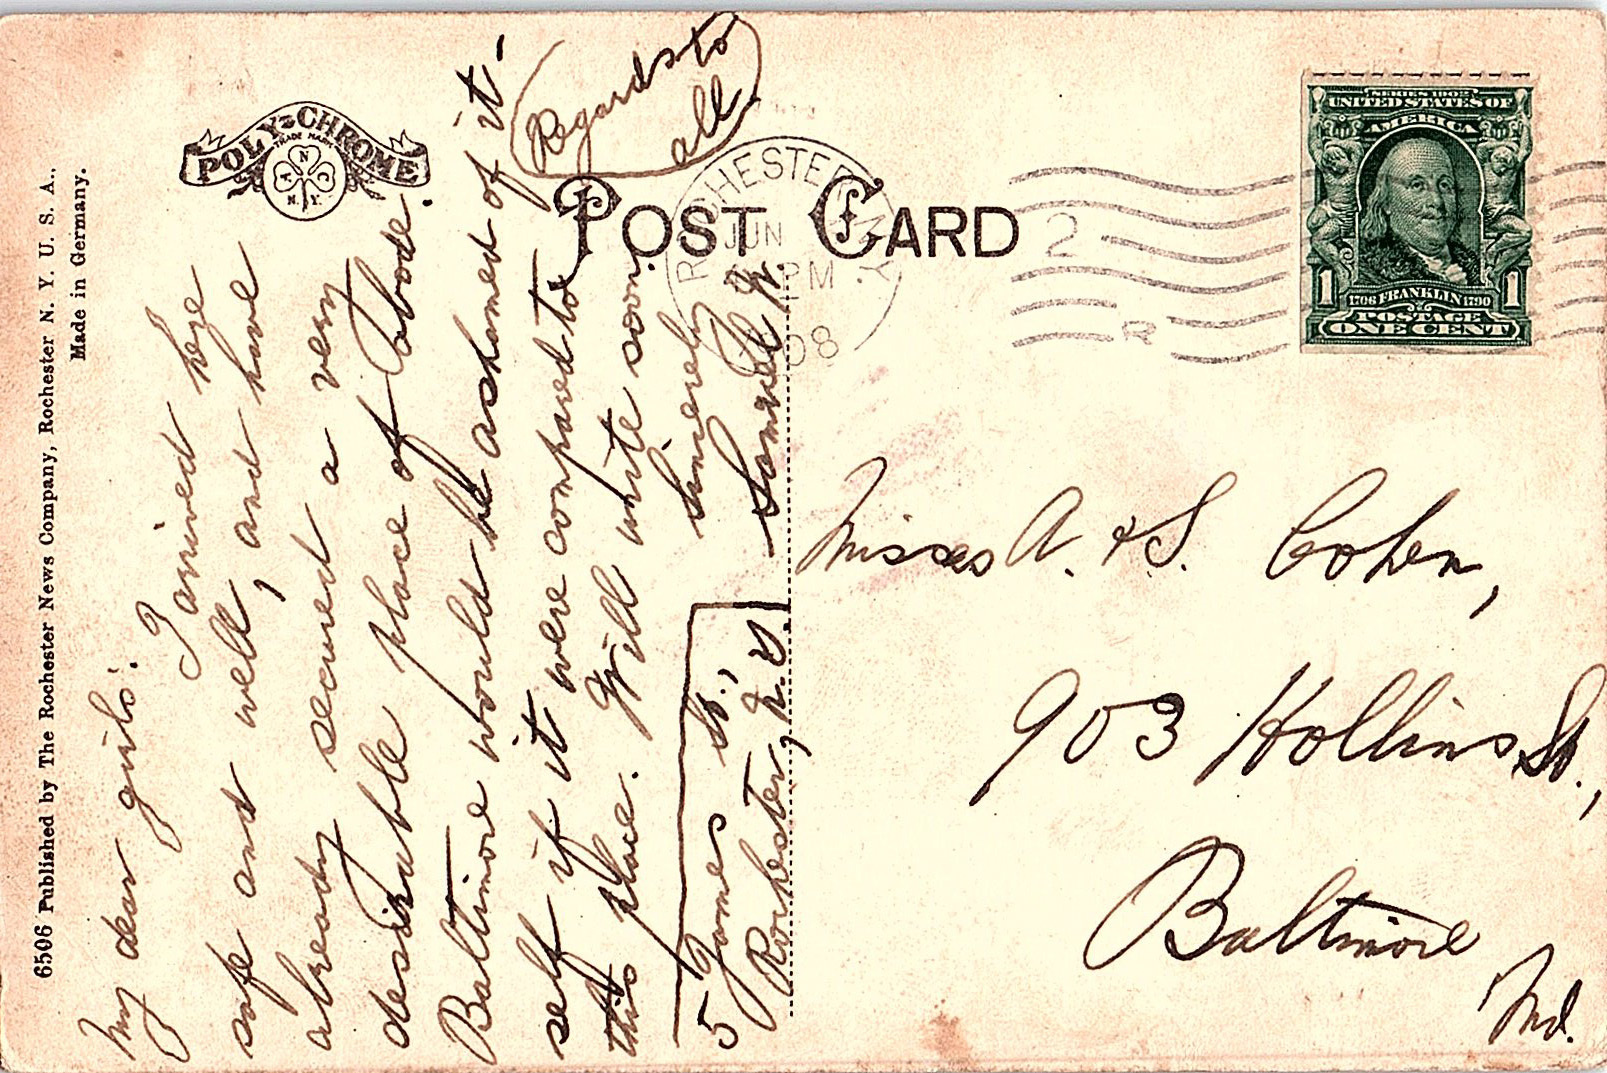 6506 Published by The Rochester News Company, Rochester N. Y. U. S. A.,
Made in Germany.
POLY-CHROME
TRADE MARK
A N C
N.Y.
POST CARD
ROCHESTER, N.Y.
JUN
PM
08
2
R
SERIES 1902
UNITED STATES OF
AMERICA
1706 FRANKLIN 1790
1 1
POSTAGE
ONE CENT
My dear girls:
I arrived here
safe and well, and have
already secured a very
desirable place of abode.
Baltimore would be ashamed of it-
self if it were compared to
this place. Will write soon.
Sincerely
Samuel W.
Regards to
all.
5 James St.,
Rochester, N.Y.
Misses A. & S. Cohen,
903 Hollins St.,
Baltimore
Md.